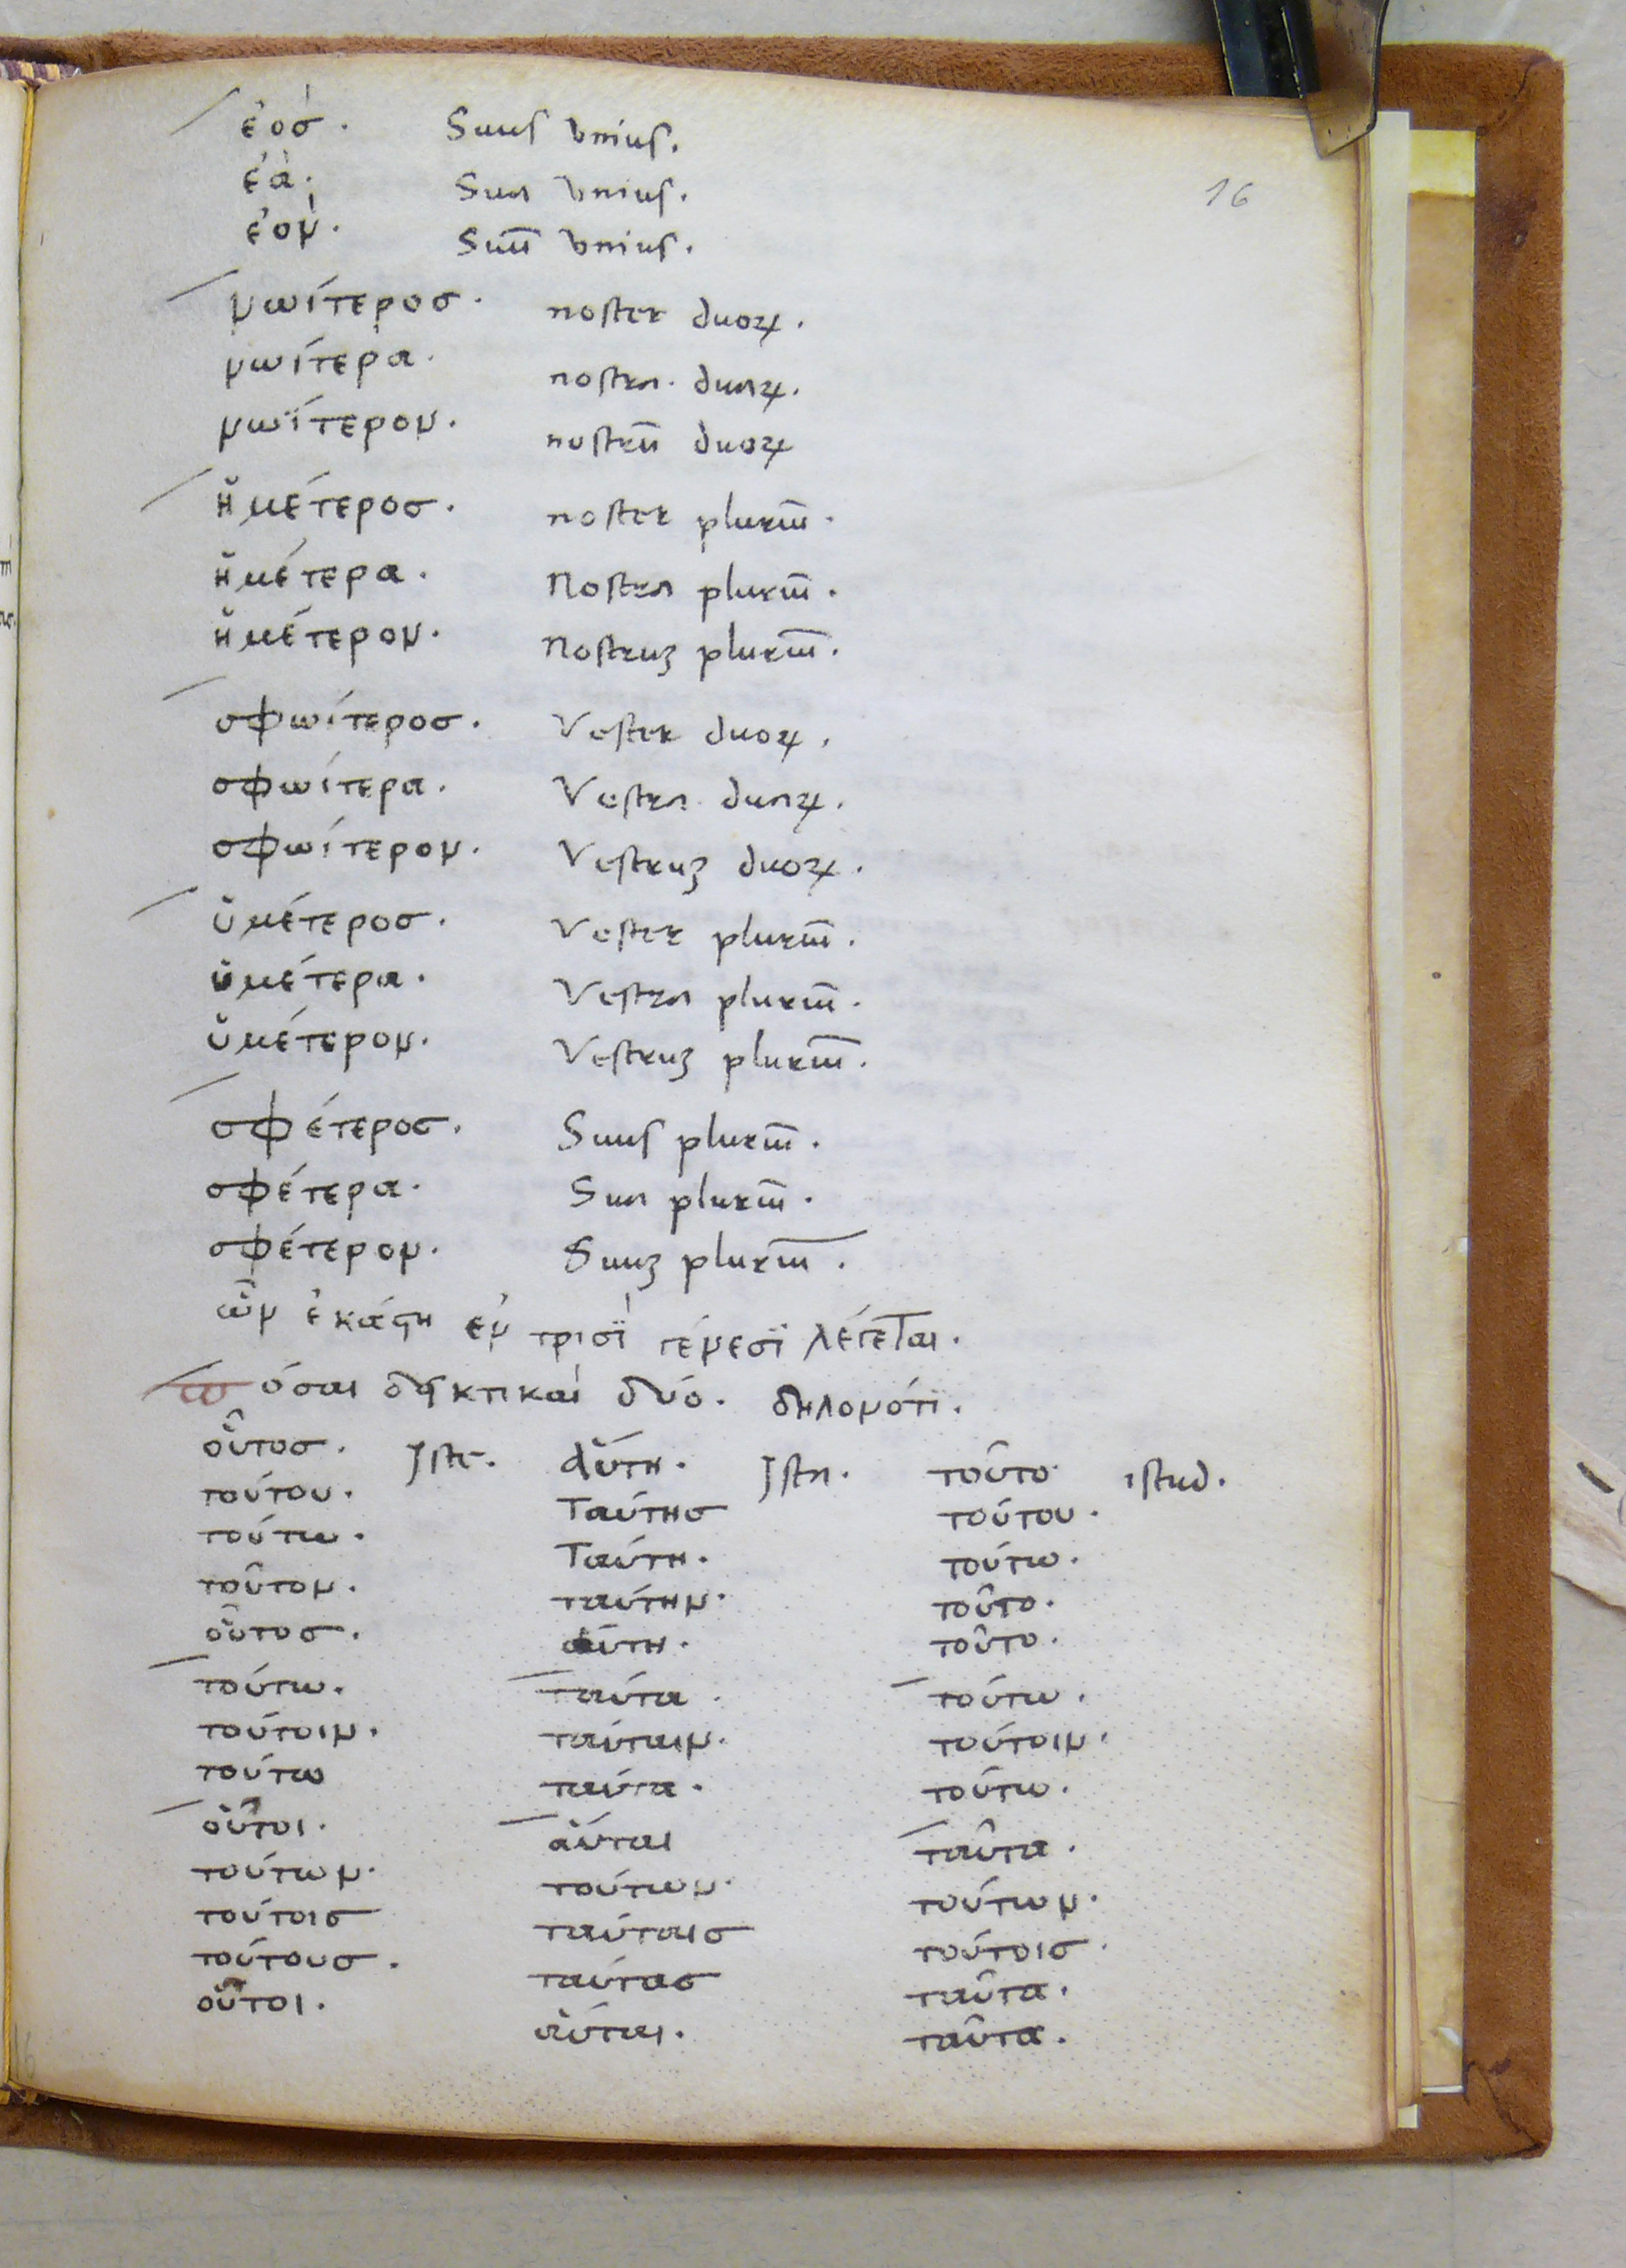 16
ἐὸσ. Suus vnius.
ἐὰ. Sua vnius.
ἐὸν. Suū vnius.
νωίτεροσ. noster duoꝝ.
νωίτερα. nostra. duaꝝ.
νωΐτερον. nostrū duoꝝ
ἡμέτεροσ. noster pluriū.
ἡμέτερα. Nostra pluriū.
ἡμέτερον. Nostruʒ pluriū.
σφωίτεροσ. Vester duoꝝ.
σφωίτερα. Vestra. duaꝝ.
σφωίτερον. Vestruʒ duoꝝ.
ὑμέτεροσ. Vester pluriū.
ὑμέτερα. Vestra pluriū.
ὑμέτερον. Vestruʒ pluriū.
σφέτεροσ. Suus pluriū.
σφέτερα. Sua pluriū.
σφέτερον. Suuʒ pluriū.
ὧν ἐκάστη ἐν τρισῒ γένεσϊ λέγεται.
πόσαι δεικτικαὶ δύο. δηλονότϊ.
οὗτοσ. Iste. αὕτη. Ista. τοῦτο istud.
τούτου. Ταύτησ τούτου.
τούτω. Ταύτη. τούτω.
τοῦτον. ταύτην. τοῦτο.
οὗτοσ. αύτη. τοῦτο.
τούτω. ταύτα. τούτω.
τούτοιν. ταύταιν. τούτοιν.
τούτω ταύτα. τούτω.
οὗτοι. αὕται ταῦτα.
τούτων. τούτων. τούτων.
τούτοισ ταύταισ τούτοισ.
τούτουσ. ταύτασ ταῦτα.
οὗτοι. αὕται. ταῦτα.